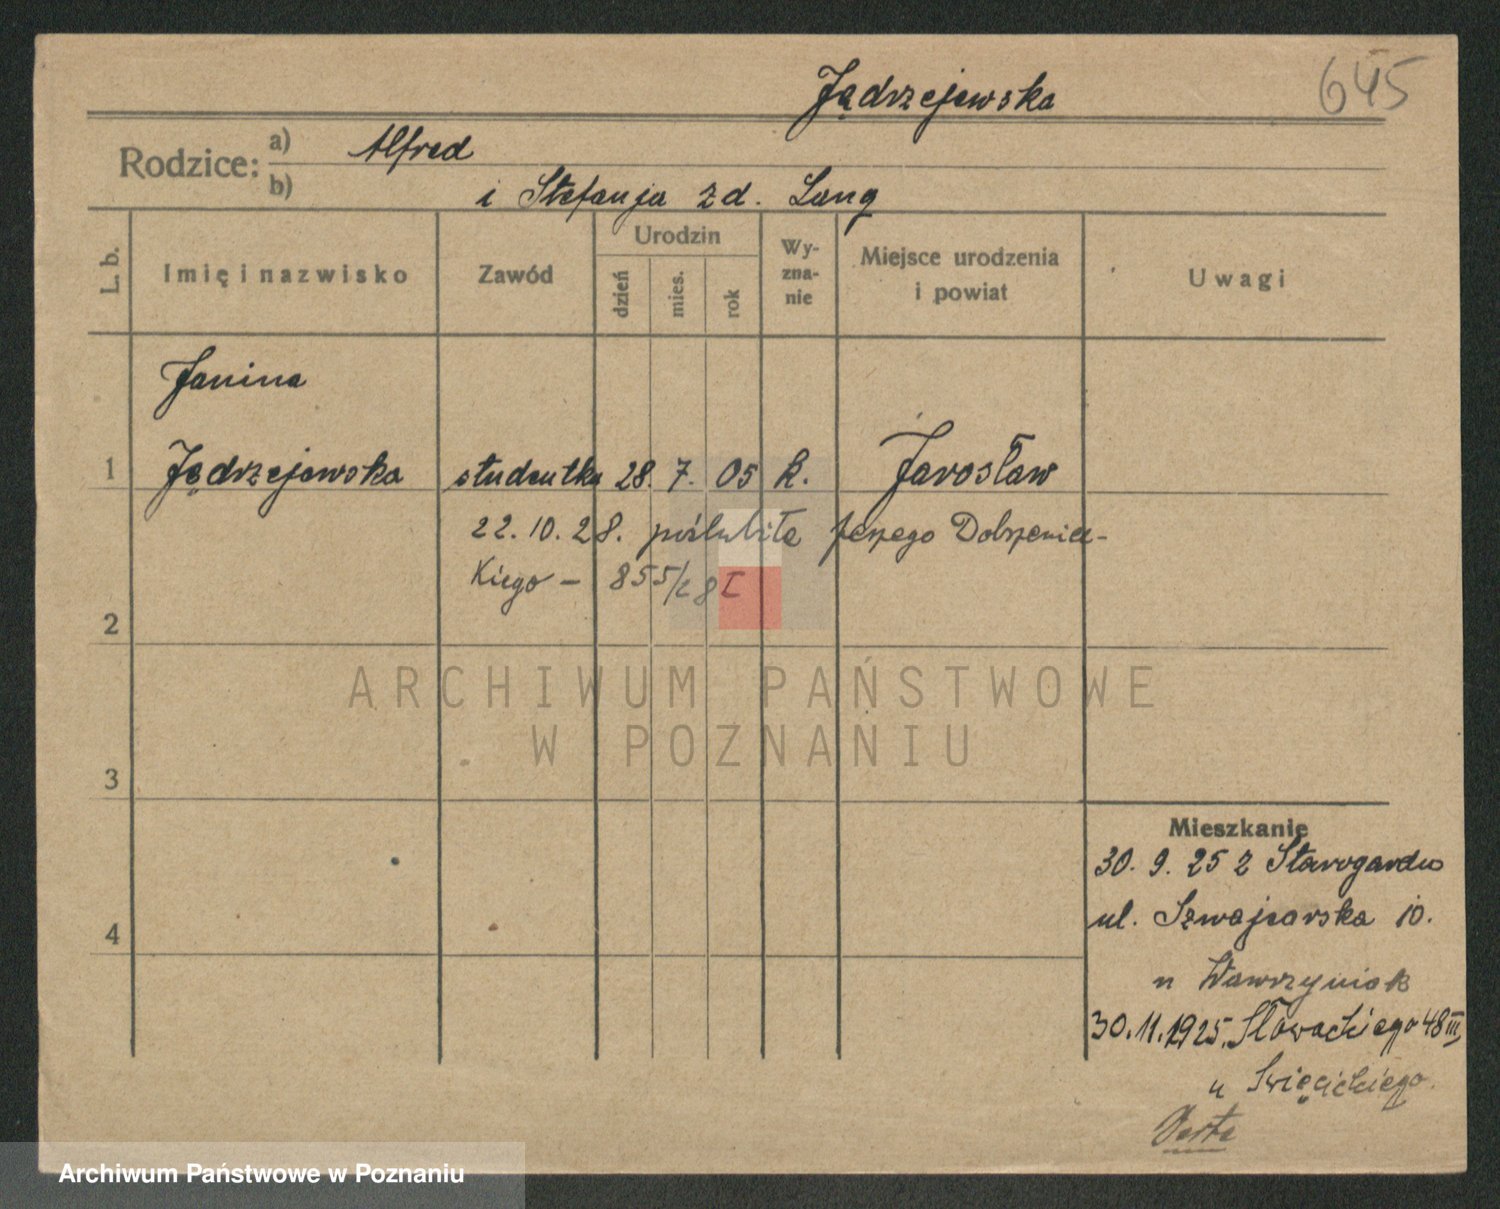 645
Jądrzejewska
Rodzice: a) Alfred
b) i Stefanja zd. Lang
L. b.
Imię i nazwisko
Zawód
Urodzin
dzień
mies.
rok
Wy-
zna-
nie
Miejsce urodzenia
i powiat
Uwagi
Janina
1 Jądrzejewska studentka 28. 7. 05 k. Jarosław
22.10.28. poślubiła Jerzego Dobrzeniec-
kiego –
2
3
4
ARCHIWUM PAŃSTWOWE
W POZNANIU
Mieszkanie
30. 9. 25 z Starogardu
ul. Szwajcarska 10.
u Wawrzyniak
30.11.1925. Słowackiego 48 III,
u Święcickiego.
Verte
Archiwum Państwowe w Poznaniu